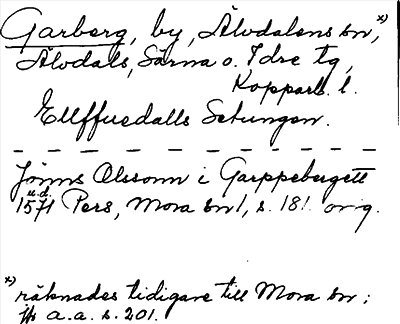 Garberg, by, Älvdalens sn, x)
Älvdals, Särna o. Idre tg,
Kopparb. l.
Ellffuedalls Setungen.
Jönns Olssonn i Garppebergett
u.d.
1571 Pers, Mora sn 1, s. 181. orig.
x) räknades tidigare till Mora sn;
jfr a.a. s. 201.